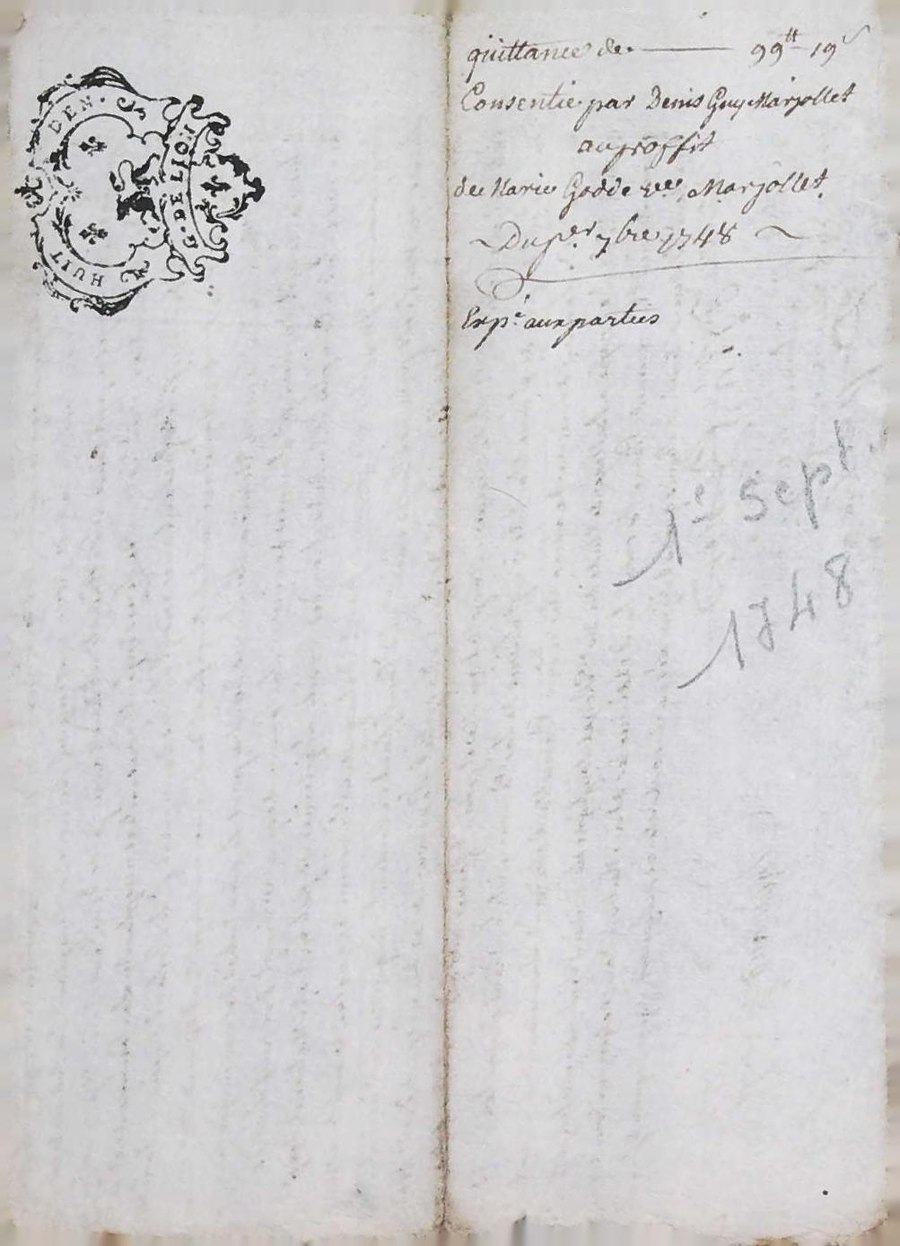 HUIT DEN.
G. DE LION
quittance de 99tt 19s
Consentie par Denis Guy Marjollet
au proffit
de Marie Godde vee Marjollet
Du per 7bre 1748
Expe aux parties
1e Sept.
1748